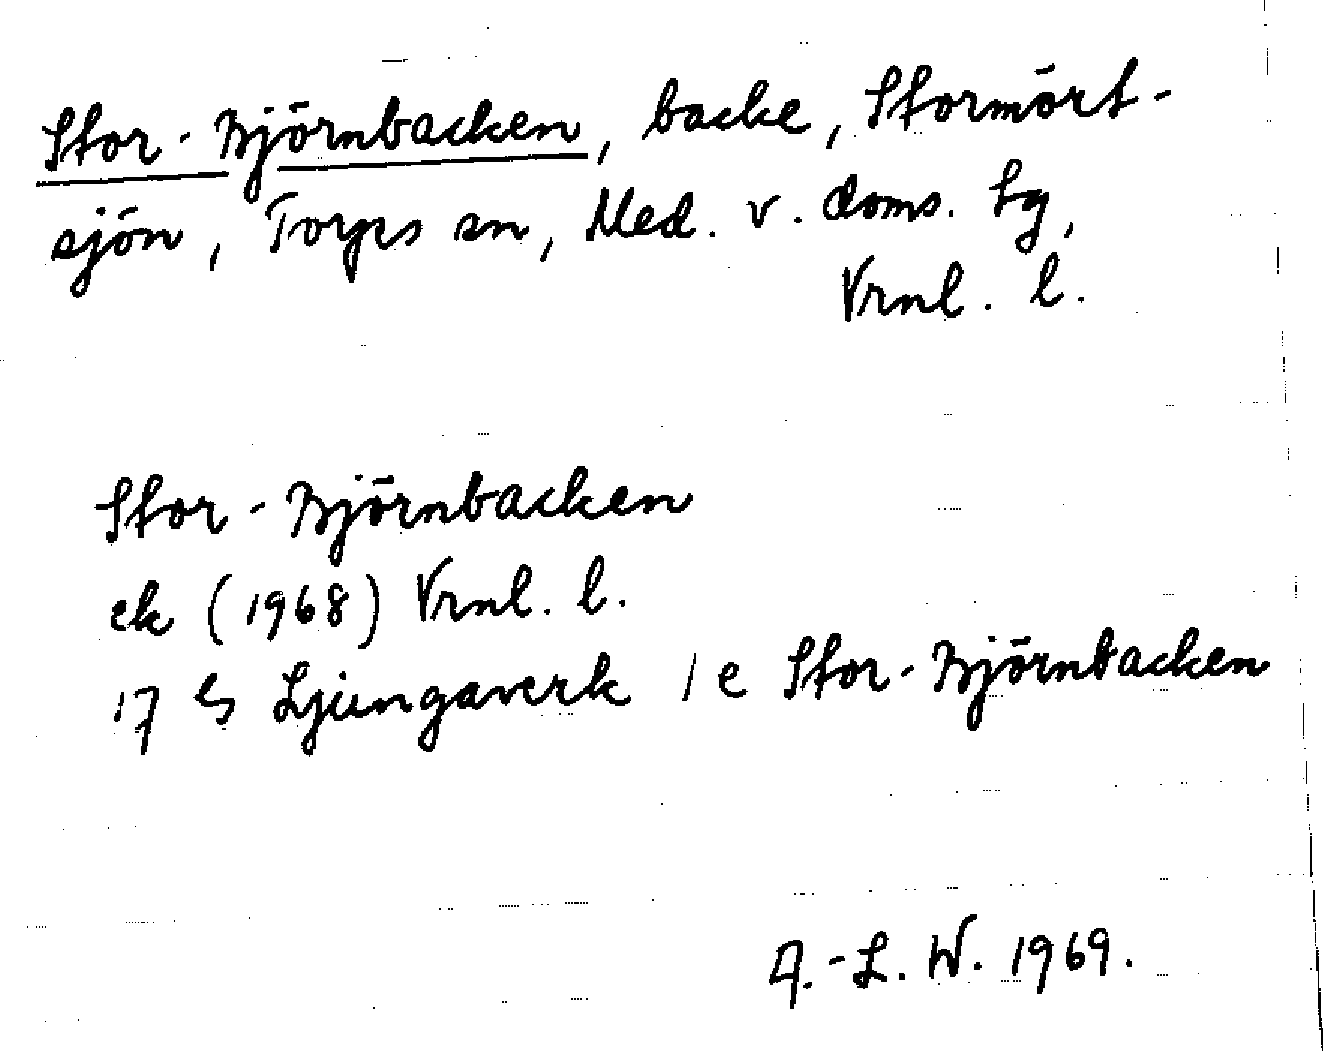 Stor-Björnbacken, backe, Stormört-
sjön, Torps sn, Med. v. doms. tg,
Vrnl. l.
Stor-Björnbacken
ek (1968) Vrnl. l.
17 G Ljungaverk 1 e Stor-Björnbacken
A.-L. W. 1969.